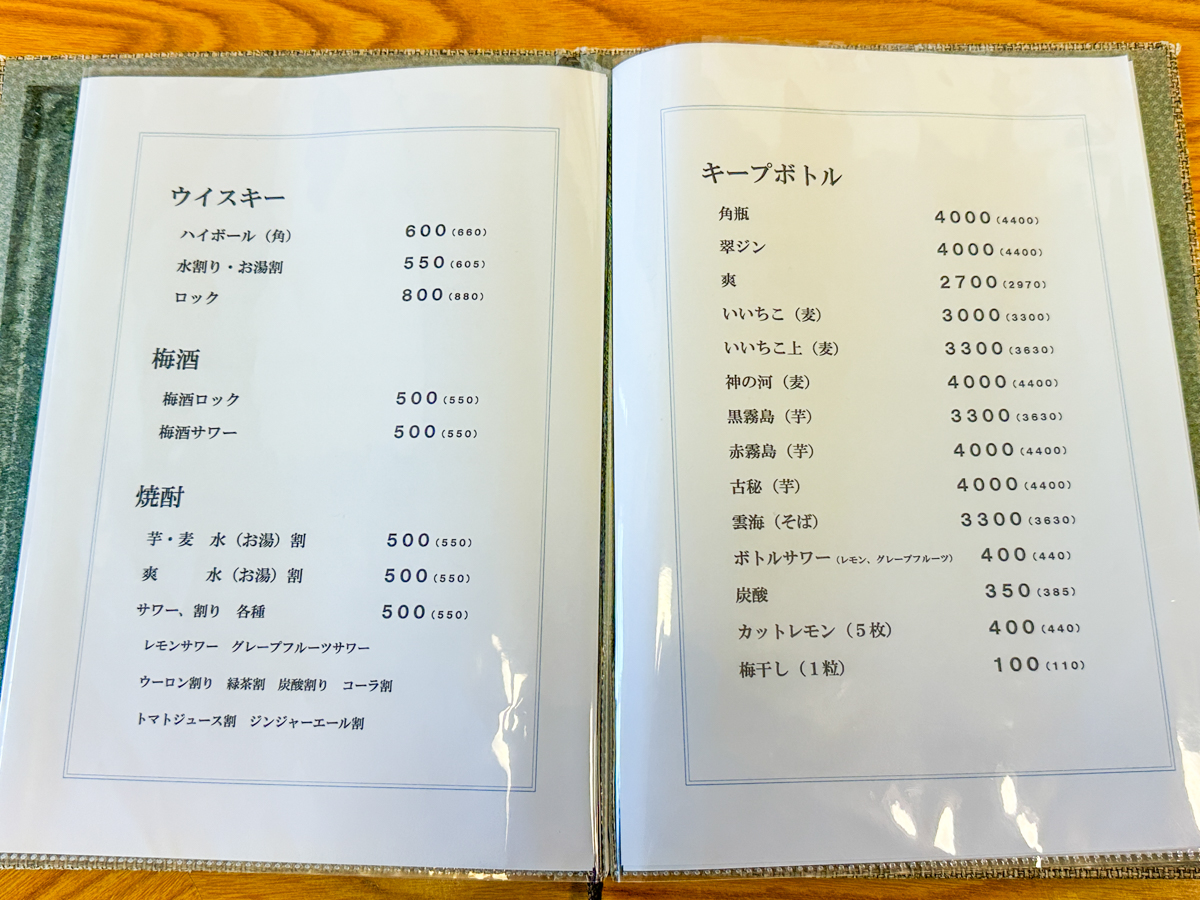 ウイスキー
ハイボール（角） 600(660)
水割り・お湯割 550(605)
ロック 800(880)
梅酒
梅酒ロック 500(550)
梅酒サワー 500(550)
焼酎
芋・麦 水（お湯）割 500(550)
爽 水（お湯）割 500(550)
サワー、割り 各種 500(550)
レモンサワー グレープフルーツサワー
ウーロン割り 緑茶割 炭酸割り コーラ割
トマトジュース割 ジンジャーエール割
キープボトル
角瓶 4000(4400)
翠ジン 4000(4400)
爽 2700(2970)
いいちこ（麦） 3000(3300)
いいちこ上（麦） 3300(3630)
神の河（麦） 4000(4400)
黒霧島（芋） 3300(3630)
赤霧島（芋） 4000(4400)
古秘（芋） 4000(4400)
雲海（そば） 3300(3630)
ボトルサワー（レモン、グレープフルーツ） 400(440)
炭酸 350(385)
カットレモン（５枚） 400(440)
梅干し（１粒） 100(110)